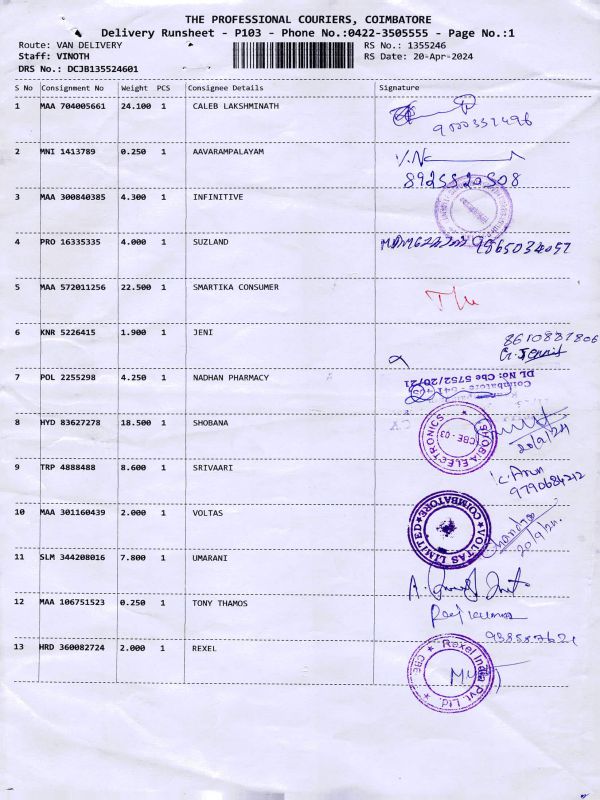 THE PROFESSIONAL COURIERS, COIMBATORE
Delivery Runsheet - P103 - Phone No.:0422-3505555 - Page No.:1
Route: VAN DELIVERY RS No.: 1355246
Staff: VINOTH RS Date: 20-Apr-2024
DRS No.: DCJB135524601
S No Consignment No Weight PCS Consignee Details Signature
1 MAA 704005661 24.100 1 CALEB LAKSHMINATH
9000332496
2 MNI 1413789 0.250 1 AAVARAMPALAYAM
8925820508
3 MAA 300840385 4.300 1 INFINITIVE
4 PRO 16335335 4.000 1 SUZLAND 9865034057
5 MAA 572011256 22.500 1 SMARTIKA CONSUMER
6 KNR 5226415 1.900 1 JENI 8610887806
7 POL 2255298 4.250 1 NADHAN PHARMACY
DL No: Cbe 5752/20/21
8 HYD 83627278 18.500 1 SHOBANA
SHOBIA ELECTRONICS CBE - 03
20/9/24
9 TRP 4888488 8.600 1 SRIVAARI
C. Arun
9790684212
10 MAA 301160439 2.000 1 VOLTAS
VOLTAS LIMITED COIMBATORE
20/9/24
11 SLM 344208016 7.800 1 UMARANI
12 MAA 106751523 0.250 1 TONY THAMOS
13 HRD 360082724 2.000 1 REXEL
Rexel India Pvt. Ltd. CBE